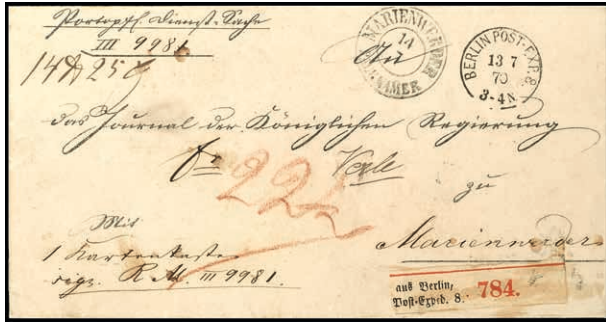 Portopfl. Dienst-Sache
III 9981.
MARIENWERDER
14
An
BERLIN POST-EXP. 8.
13 7
70
3-4N.
das Journal der Königlichen Regierung
zu
Mit
Marienwerder
1 Kartenkasten
sign. R. M. III 9981.
aus Berlin,
Post-Exped. 8.
784.